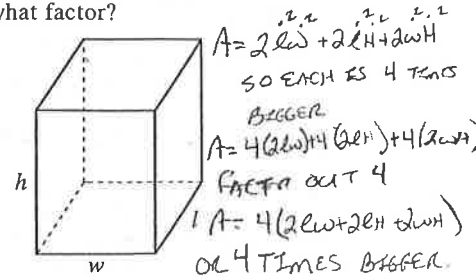 what factor?
.2 .2 .2 .2 .2 .2
A= 2lw +2lH+2wH
SO EACH IS 4 TIMES
BIGGER
A= 4(2lw)+4(2lH)+4(2wH)
FACTOR OUT 4
h
l
A= 4(2lw+2lH+2wH)
w
OR 4 TIMES BIGGER.